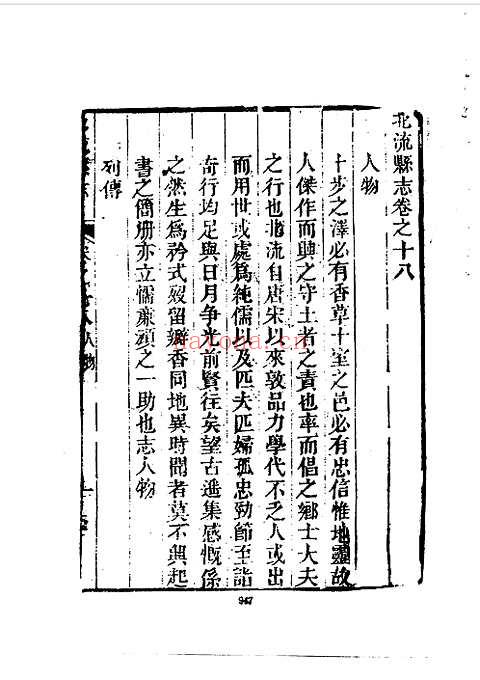 北流縣志卷之十八
人物
十步之澤必有香草十室之邑必有忠信惟地靈故
人傑作而興之守土者之責也率而倡之鄉士大夫
之行也北流自唐宋以來敦品力學代不乏人或出
而用世或處爲純儒以及匹夫匹婦孤忠勁節至詣
奇行均足與日月争光前賢往矣望古遥集感慨係
之然生爲矜式歿留瓣香同地異時聞者莫不興起
書之簡册亦立懦廉頑之一助也志人物
列傳
人物
947
nayona.cn